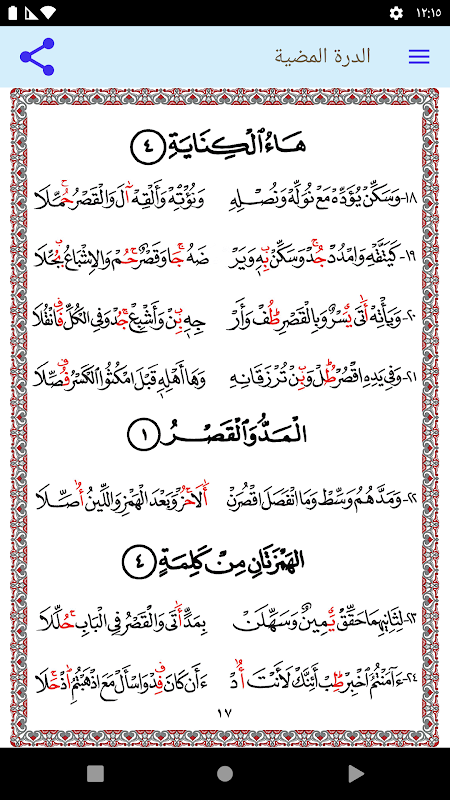 ١٢:١٥
الدرة المضية
هَاءُ الْكِنَايَةِ (٤)
١٨-وَسَكِّنْ يُؤَدِّهْ مَعْ نُوَلِّهْ وَنُصْلِهِ وَنُؤْتِهْ وَأَلْقِهْ آلَ وَالْقَصْرُ حُمِّلَا
١٩-كَيَتَّقْهِ وَامْدُدْ جُدْ وَسَكِّنْ بِهِ وَيَرْ ضَهُ جَا وَقَصْرٌ حُمْ وَالِاشْبَاعُ بُجِّلَا
٢٠-وَيَأْتِهْ أَتَى يُسْرٌ وَبِالْقَصْرِ طُفْ وَأَرْ جِهِ بِنْ وَأَشْبِعْ جُدْ وَفِي الْكُلِّ فَانْقُلَا
٢١-وَفِي يَدِهِ اقْصُرْ طُلْ وَبِنْ تُرْزَقَانِهِ وَهَا أَهْلِهِ قَبْلَ امْكُثُوا الْكَسْرُ فُصِّلَا
الْمَدُّ وَالْقَصْرُ (١)
٢٢-وَمَدَّهُمُ وَسِّطْ وَمَا انْفَصَلَ اقْصُرَنْ أَلَا حُزْ وَبَعْدَ الْهَمْزِ وَاللِّينُ أُصِّلَا
الْهَمْزَتَانِ مِنْ كَلِمَةٍ (٤)
٢٣-لِثَانِيهِمَا حَقِّقْ يَمِينٌ وَسَهِّلَنْ بِمَدٍّ أَتَى وَالْقَصْرُ فِي الْبَابِ حُلِّلَا
٢٤-ءَآمَنْتُمُ اخْبِرْ طِبْ أَئِنَّكَ لَأَنْتَ أُدْ ءَأَنْ كَانَ فِدْ وَاسْأَلْ مَعَ اذْهَبْتُمُ اذْ حَلَا
١٧